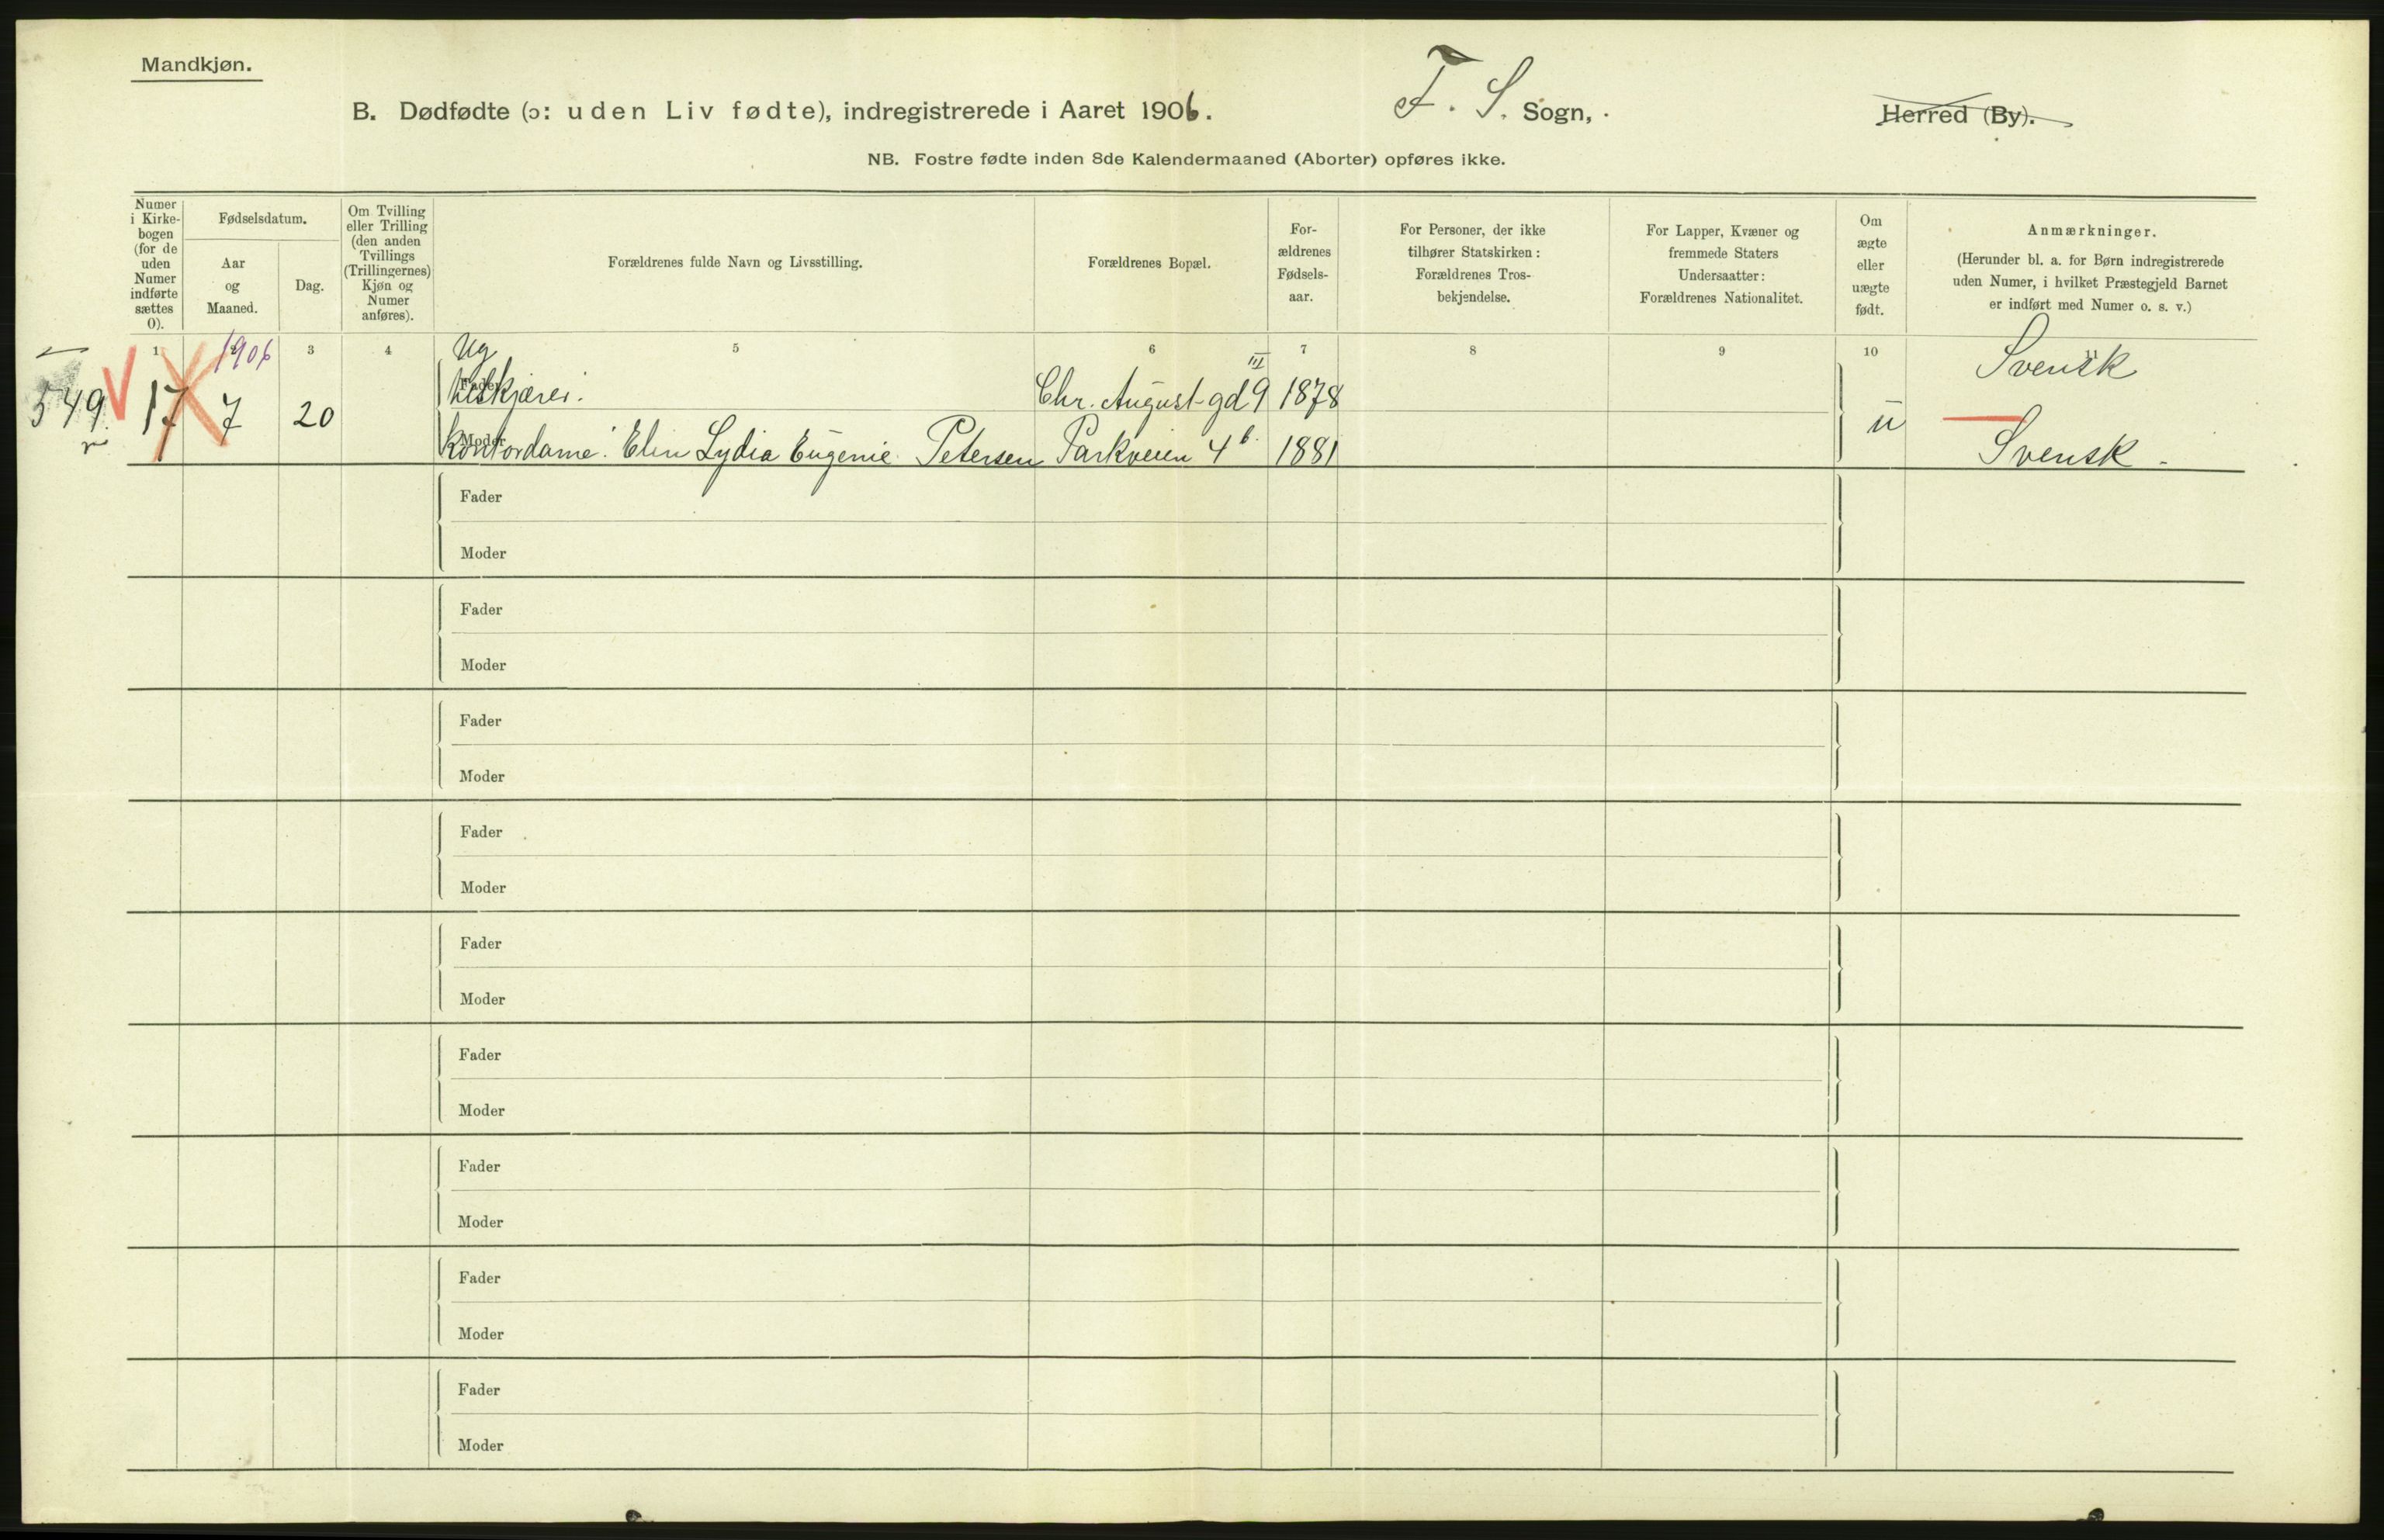 Mandkjøn.
B. Dødfødte (ɔ: uden Liv fødte), indregistrerede i Aaret 1906.
F. S. Sogn,
Herred (By).
NB. Fostre fødte inden 8de Kalendermaaned (Aborter) opføres ikke.
Numer i Kirkebogen (for de uden Numer indførte sættes 0).
Fødselsdatum.
Aar og Maaned.
Dag.
Om Tvilling eller Trilling (den anden Tvillings (Trillingernes) Kjøn og Numer anføres).
Forældrenes fulde Navn og Livsstilling.
Forældrenes Bopæl.
Forældrenes Fødselsaar.
For Personer, der ikke tilhører Statskirken: Forældrenes Trosbekjendelse.
For Lapper, Kvæner og fremmede Staters Undersaatter: Forældrenes Nationalitet.
Om ægte eller uægte født.
Anmærkninger.
(Herunder bl. a. for Børn indregistrerede uden Numer, i hvilket Præstegjeld Barnet er indført med Numer o. s. v.)
1 2 3 4 5 6 7 8 9 10 11
1906
Ug
III
Svensk
549 17 7 20
Fader
Chr. August gd 9 1878
u
Moder
Kontordame Elin Lydia Eugenie Petersen Parkveien 4 b. 1881
Svensk -
Fader
Moder
Fader
Moder
Fader
Moder
Fader
Moder
Fader
Moder
Fader
Moder
Fader
Moder
Fader
Moder
Fader
Moder